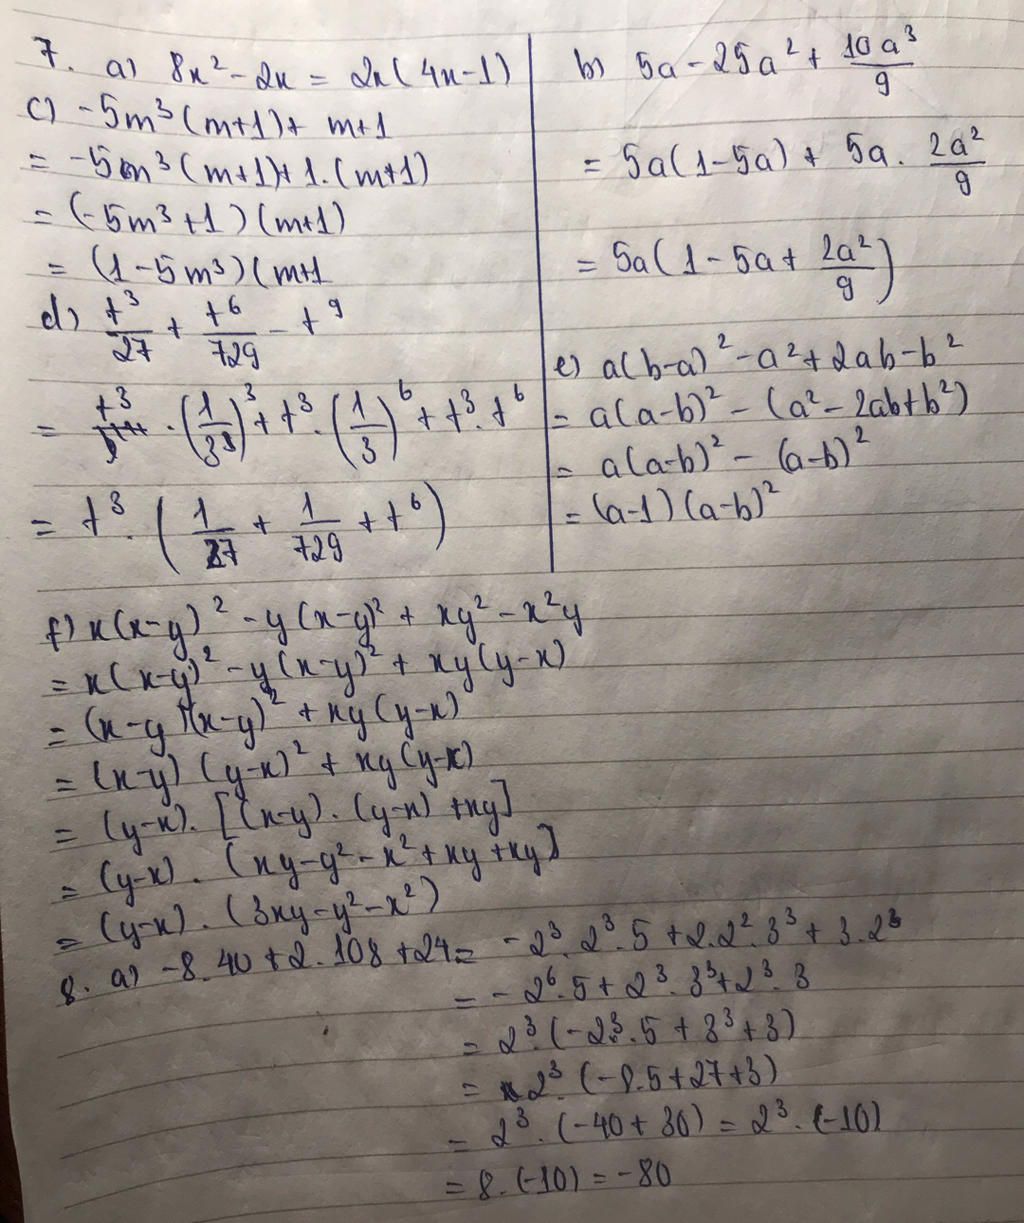 7. a) 8x² - 2x = 2x(4x-1)
c) -5m³(m+1)+ m+1
= -5m³(m+1)+1.(m+1)
= (-5m³+1)(m+1)
= (1-5m³)(m+1
d) t³/27 + t⁶/729 - t⁹
= t³ . (1/3)³ + t³ . (1/3)⁶ + t³ . t⁶
= t³ . (1/27 + 1/729 + t⁶)
b) 5a - 25a² + 10a³/9
= 5a(1-5a) + 5a . 2a²/9
= 5a(1 - 5a + 2a²/9)
e) a(b-a)² - a² + 2ab - b²
= a(a-b)² - (a² - 2ab + b²)
= a(a-b)² - (a-b)²
= (a-1)(a-b)²
f) x(x-y)² - y(x-y)² + xy² - x²y
= x(x-y)² - y(x-y)² + xy(y-x)
= (x-y)(x-y)² + xy(y-x)
= (x-y)(y-x)² + xy(y-x)
= (y-x). [(x-y).(y-x) + xy]
= (y-x) . (xy - y² - x² + xy + xy]
= (y-x) . (3xy - y² - x²)
8. a) -8.40 + 2.108 + 24 = -2³.2³.5 + 2.2².3³ + 3.2³
= -2⁶.5 + 2³.3³ + 2³.3
= 2³.(-2³.5 + 3³ + 3)
= 2³.(-8.5 + 27 + 3)
= 2³.(-40 + 30) = 2³.(-10)
= 8.(-10) = -80